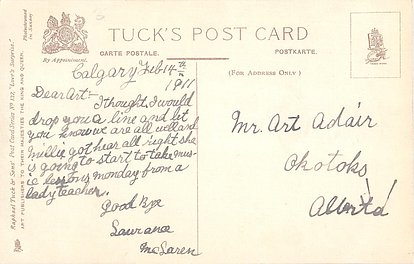 TUCK'S POST CARD
CARTE POSTALE.
POSTKARTE.
By Appointment.
(FOR ADDRESS ONLY)
Raphael Tuck & Sons' Post Card Series No 112, "Love's Surprise."
ART PUBLISHERS TO THEIR MAJESTIES THE KING AND QUEEN.
Photogravured
in Saxony
Calgary Feb 14th
1911
Dear Art:-
I thought I would
drop you a line and let
you know we are all well and
Millie got hear all right she
is going to start to take mus-
ic lessons monday from a
lady teacher.
Good Bye
Laurana
McLaren
Mr. Art Adair
Okotoks
Alberta